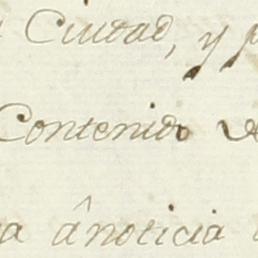 Ciudad, y
Contenido de
a ânoticia